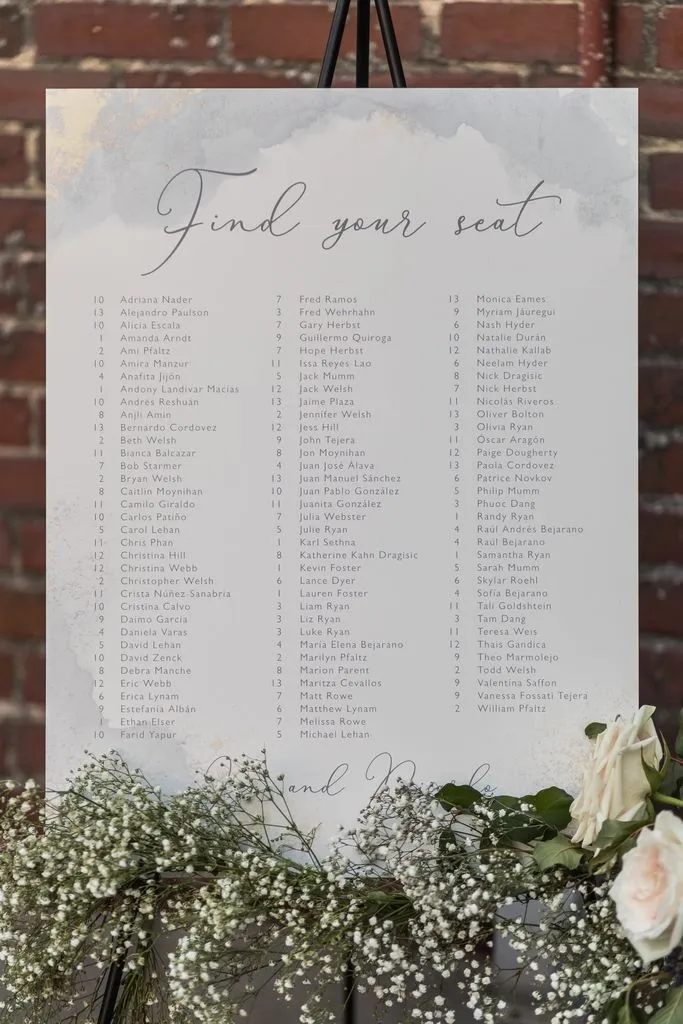 Find your seat
10 Adriana Nader
13 Alejandro Paulson
10 Alicia Escala
1 Amanda Arndt
2 Ami Pfaltz
10 Amira Manzur
4 Anafita Jijón
1 Andony Landivar Macias
10 Andrés Reshuan
8 Anjli Amin
13 Bernardo Cordovez
2 Beth Welsh
11 Bianca Balcazar
7 Bob Starmer
2 Bryan Welsh
8 Caitlin Moynihan
11 Camilo Giraldo
10 Carlos Patiño
5 Carol Lehan
11 Chris Phan
12 Christina Hill
12 Christina Webb
2 Christopher Welsh
11 Crista Núñez-Sanabria
10 Cristina Calvo
9 Daimo Garcia
4 Daniela Varas
5 David Lehan
10 David Zenck
8 Debra Manche
12 Eric Webb
6 Erica Lynam
9 Estefanía Albán
1 Ethan Elser
10 Farid Yapur
7 Fred Ramos
3 Fred Wehrhahn
7 Gary Herbst
9 Guillermo Quiroga
7 Hope Herbst
11 Issa Reyes-Lao
5 Jack Mumm
12 Jack Welsh
13 Jaime Plaza
2 Jennifer Welsh
12 Jess Hill
9 John Tejera
8 Jon Moynihan
4 Juan José Alava
13 Juan Manuel Sánchez
10 Juan Pablo González
11 Juanita González
7 Julia Webster
5 Julie Ryan
1 Karl Sethna
8 Katherine Kahn Dragisic
1 Kevin Foster
6 Lance Dyer
1 Lauren Foster
3 Liam Ryan
3 Liz Ryan
3 Luke Ryan
4 María Elena Bejarano
2 Marilyn Pfaltz
8 Marion Parent
13 Maritza Cevallos
7 Matt Rowe
6 Matthew Lynam
7 Melissa Rowe
5 Michael Lehan
13 Monica Eames
9 Myriam Jáuregui
6 Nash Hyder
10 Natalie Durán
12 Nathalie Kallab
6 Neelam Hyder
8 Nick Dragisic
7 Nick Herbst
11 Nicolás Riveros
13 Oliver Bolton
3 Olivia Ryan
11 Óscar Aragón
12 Paige Dougherty
13 Paola Cordovez
6 Patrice Novkov
5 Philip Mumm
3 Phuoc Dang
1 Randy Ryan
4 Raúl Andrés Bejarano
4 Raúl Bejarano
1 Samantha Ryan
5 Sarah Mumm
6 Skylar Roehl
4 Sofía Bejarano
11 Tali Goldshtein
3 Tam Dang
11 Teresa Weis
12 Thais Gandica
9 Theo Marmolejo
2 Todd Welsh
9 Valentina Saffon
9 Vanessa Fossati Tejera
2 William Pfaltz
and